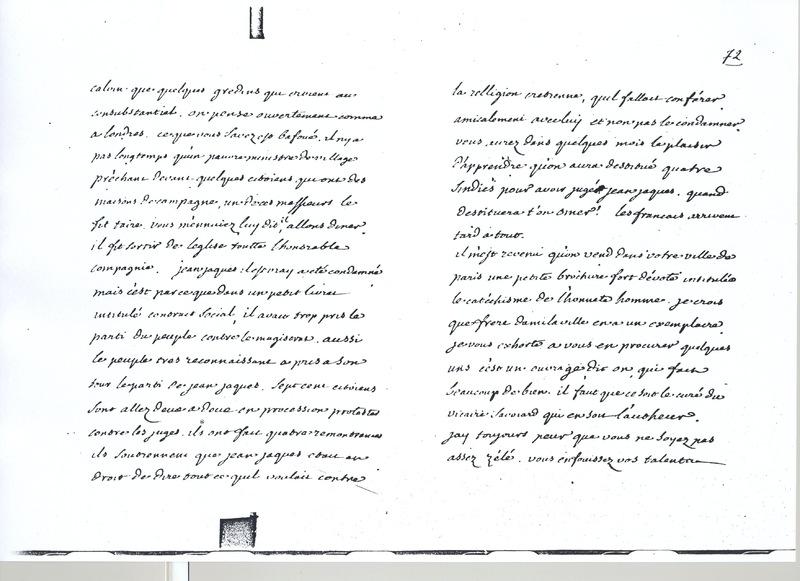 calvin que quelques gredins qui croient au
consubstantiel. on pense ouvertement comme
a londres. ce que vous savez est bafoué. il n'y a
pas longtemps qu'un pauvre ministre de village
prêchant devant quelques citoiens qui ont des
maisons de campagne, un de ces messieurs le
fit taire. vous m'ennuiez luy dit il, allons diner,
il fit sortir de l'eglise toutte l'honorable
compagnie. jean jaques il est vray a eté condamné
mais c'est parce que dans un petit livret
intitulé contract social, il avait trop pris le
parti du peuple contre le magistrat. aussi
le peuple tres reconnaissant a pris a son
tour le parti de jean jaques. sept cent citoiens
sont allez deux a deux en procession protester
contre les juges. ils ont fait quatre remontrances
ils soutiennent que jean jaques etait en
droit de dire tout ce qu'il voulait contre
72
la relligion cretienne, qu'il fallait conférer
amicalement avec luy et non pas le condamner.
vous aurez dans quelques mois le plaisir
d'apprendre qu'on aura destitué quatre
sindics pour avoir jugé jean jaques. quand
destituera t'on omer? les francais arrivent
tard a tout.
il m'est revenu qu'on vend dans votre ville de
paris une petite brochure fort dévote intitulée
le catéchisme de l'honnete homme. je crois
que frere damilaville en a un exemplaire.
je vous exhorte a vous en procurer quelques
uns c'est un ouvrage dit on, qui fait
beaucoup de bien. il faut que ce soit le curé du
vicaire savoiard qui en soit l'autheur.
j'ay toujours peur que vous ne soyez pas
assez zélé. vous enfouissez vos talents